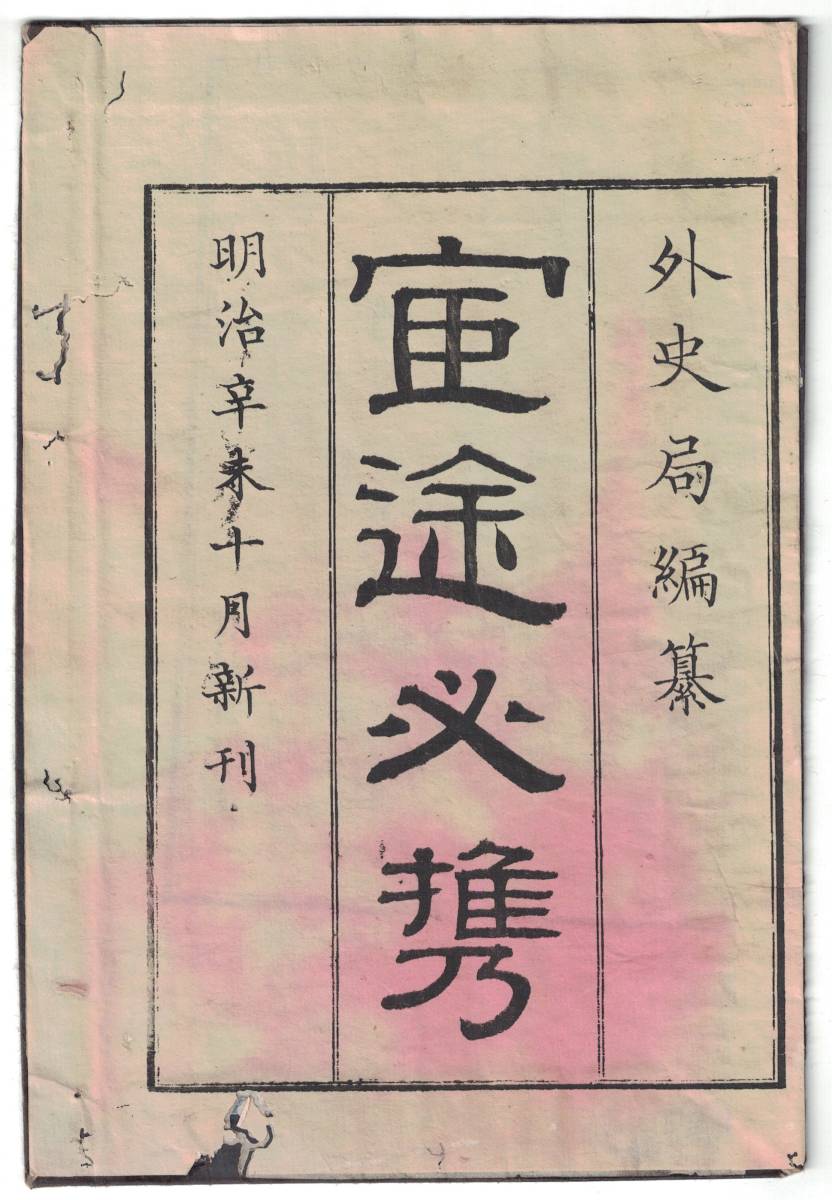 外史局編纂
宦途必携
明治辛未十月新刊